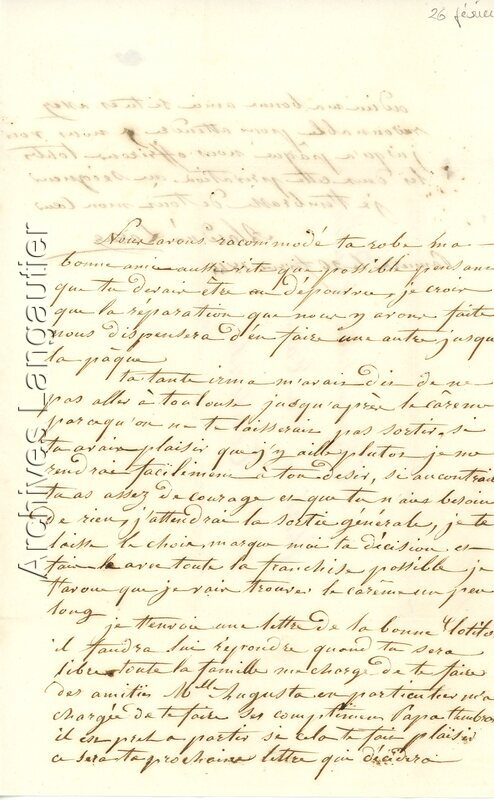 26 février
Nous avons racommodé ta robe ma
bonne amie aussi vite que possible pensant
que tu devais être au dépourvu, je crois
que la réparation que nous y avons faite
nous dispensera d'en faire une autre jusqu
la paque
ta tante irma m'avait dit de ne
pas aller à toulouse jusqu'après le carême
parcequ'on ne te laisserait pas sortir, si
tu avais plaisir que j'y aille plutot je me
rendrai facilement à ton desir, si au contraire
tu as assez de courage et que tu n'aies besoin
de rien, j'attendrai la sortie générale, je te
laisse le choix, marque moi ta décision et
fais le avec toute la franchise possible je
t'avoue que je vais trouver le carême un peu
long
je t'envoie une lettre de la bonne Clotilde
il faudra lui répondre quand tu sera
libre. toute la famille me charge de te faire
des amitiés Mlle Augusta en particulier m'a
chargée de te faire ses complimens Papa t'embrasse
il est pret a partir se cela te fait plaisir
ce sera ta prochaine lettre qui décidera
Archives Langautier